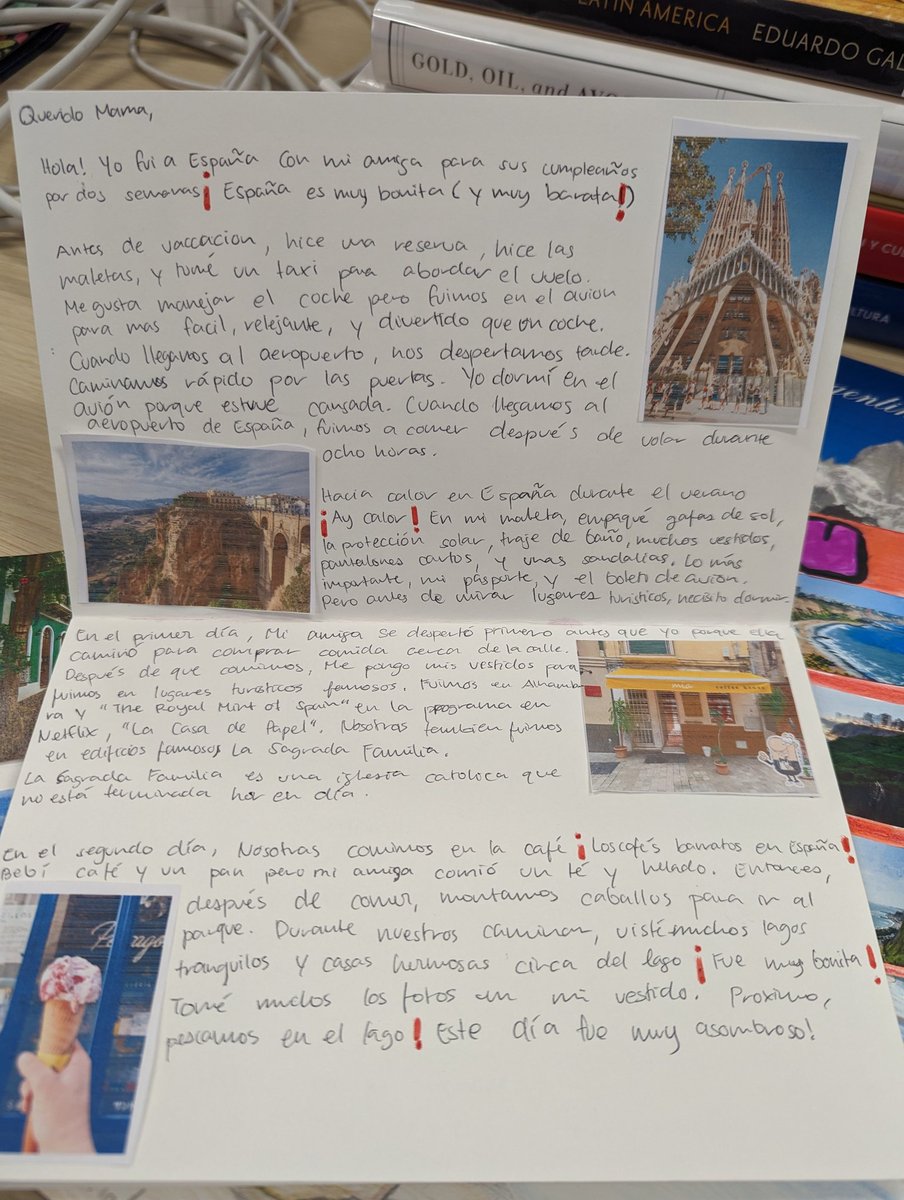 LATIN AMERICA EDUARDO GAL
GOLD, OIL, and AVO
Y CU
LTURA
gentin
Querido Mama,
Hola! Yo fui a España con mi amiga para sus cumpleaños
por dos semanas¡ España es muy bonita (y muy barata!)
Antes de vaccacion, hice una reserva, hice las
maletas, y tomé un taxi para abordar el vuelo.
Me gusta manejar el coche pero fuimos en el avion
para mas facil, relejante, y divertido que un coche.
Cuando llegamos al aeropuerto, nos despertamos tarde.
Caminamos rápido por las puertas. Yo dormí en el
avión porque estuve cansada. Cuando llegamos al
aeropuerto de España, fuimos a comer después de volar durante
ocho horas.
Hacía calor en España durante el verano
¡Ay calor! En mi maleta, empaqué gafas de sol,
la protección solar, traje de baño, muchos vestidos,
pantalones cortos, y unas sandalias. Lo más
importante, mi pasporte, y el boleto de avion.
Pero antes de mirar lugares turisticos, necisito dormir.
En el primer día, Mi amiga se despertó primero antes que yo porque ella
caminó para comprar comida cerca de la calle.
Después de que comimos, Me pongo mis vestidos para
fuimos en lugares turísticos famosos. Fuimos en Alhamb
ra y "The Royal Mint of Spain" en la programa en
Netflix, "La Casa de Papel". Nosotras tambien fuimos
en edificios famosos, La Sagrada Familia.
La Sagrada Familia es una iglesia catoloca que
no está terminada hoy en día.
mia coffee house
En el segundo día, Nosotras comimos en la café ¡ Los cafés baratos en España!
Bebí café y un pan pero mi amiga comió un té y helado. Entonces,
después de comer, montamos caballos para ir al
parque. Durante nuestros caminar, visité muchos lagos
tranquilos y casas hermosas circa del lago ¡ Fue muy bonita!
Tomé muchos los fotos en mi vestido. Proximo,
pescamos en el lago! Este día fue muy asombroso!